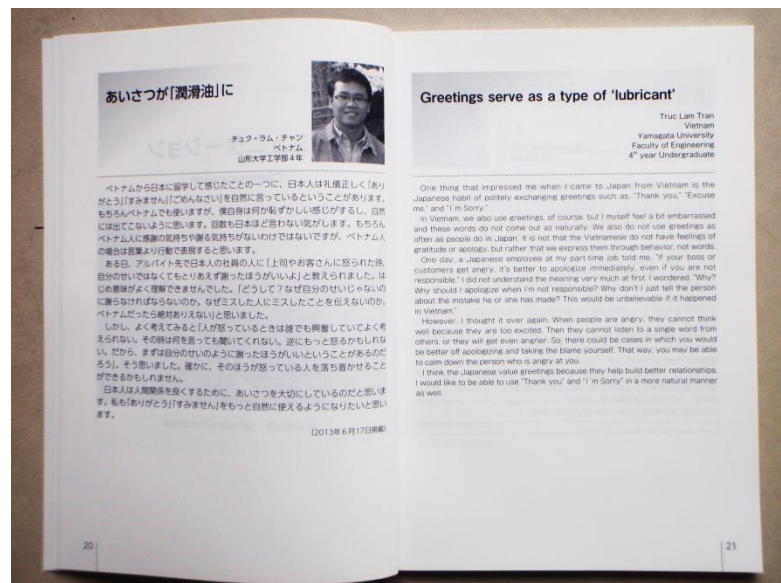 あいさつが「潤滑油」に
チュク・ラム・チャン
ベトナム
山形大学工学部4年
ベトナムから日本に留学して感じたことの一つに、日本人は礼儀正しく「あり
がとう」「すみません」「ごめんなさい」を自然に言っているということがあります。
もちろんベトナムでも使いますが、僕自身は何か恥ずかしい感じがするし、自然
には出てこないように思います。回数も日本ほど言わない気がします。もちろん
ベトナム人に感謝の気持ちや謝る気持ちがないわけではないですが、ベトナム人
の場合は言葉より行動で表現すると思います。
ある日、アルバイト先で日本人の社員の人に「上司やお客さんに怒られた時、
自分のせいではなくてもとりあえず謝ったほうがいいよ」と教えられました。は
じめ意味がよく理解できませんでした。「どうして?なぜ自分のせいじゃないの
に謝らなければならないのか。なぜミスした人にミスしたことを伝えないのか。
ベトナムだったら絶対ありえない」と思いました。
しかし、よく考えてみると「人が怒っているときは誰でも興奮していてよく考
えられない。その時は何を言っても聞いてくれない。逆にもっと怒るかもしれな
い。だから、まずは自分のせいのように謝ったほうがいいということがあるのだ
ろう」。そう思いました。確かに、そのほうが怒っている人を落ち着かせること
ができるかもしれません。
日本人は人間関係を良くするために、あいさつを大切にしているのだと思いま
す。私も「ありがとう」「すみません」をもっと自然に使えるようになりたいと思い
ます。
(2013年6月17日掲載)
20
Greetings serve as a type of ‘lubricant’
Truc Lam Tran
Vietnam
Yamagata University
Faculty of Engineering
4th year Undergraduate
One thing that impressed me when I came to Japan from Vietnam is the
Japanese habit of politely exchanging greetings such as, "Thank you," "Excuse
me," and "I'm Sorry."
In Vietnam, we also use greetings, of course, but I myself feel a bit embarrassed
and these words do not come out as naturally. We also do not use greetings as
often as people do in Japan. It is not that the Vietnamese do not have feelings of
gratitude or apology, but rather that we express them through behavior, not words.
One day, a Japanese employee at my part-time job told me, "If your boss or
customers get angry, it's better to apologize immediately, even if you are not
responsible." I did not understand the meaning very much at first. I wondered, "Why?
Why should I apologize when I'm not responsible? Why don't I just tell the person
about the mistake he or she has made? This would be unbelievable if it happened
in Vietnam."
However, I thought it over again. When people are angry, they cannot think
well because they are too excited. Then they cannot listen to a single word from
others, or they will get even angrier. So, there could be cases in which you would
be better off apologizing and taking the blame yourself. That way, you may be able
to calm down the person who is angry at you.
I think the Japanese value greetings because they help build better relationships.
I would like to be able to use "Thank you" and "I'm Sorry" in a more natural manner
as well.
21